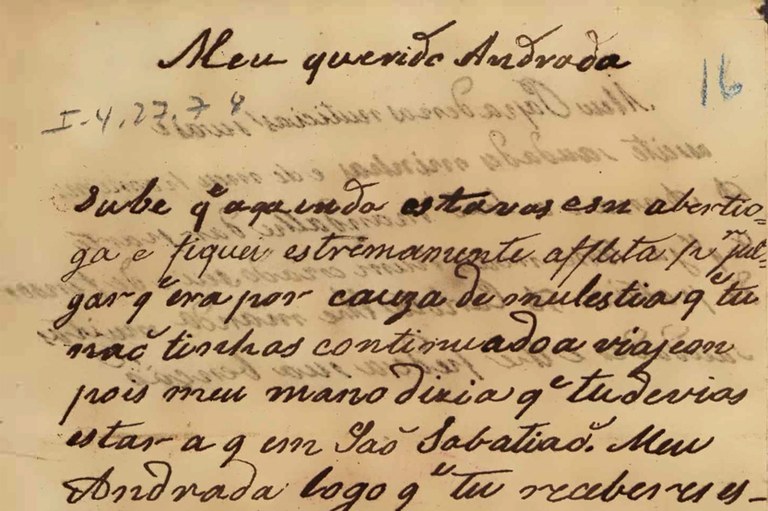 Meu querido Andrada
16
I-4,27,7
Sube q^e ainda estavas em abertio-
ga e fiquei estremamente afflita p^r jul-
gar q^e éra por cauza de mulestia q^e tu
naõ tinhas continuado a viajem
pois meu mano dizia q^e tu devias
estar a q em Saõ Sabatiaõ. Meu
Andrada logo q^e tu receberes es-